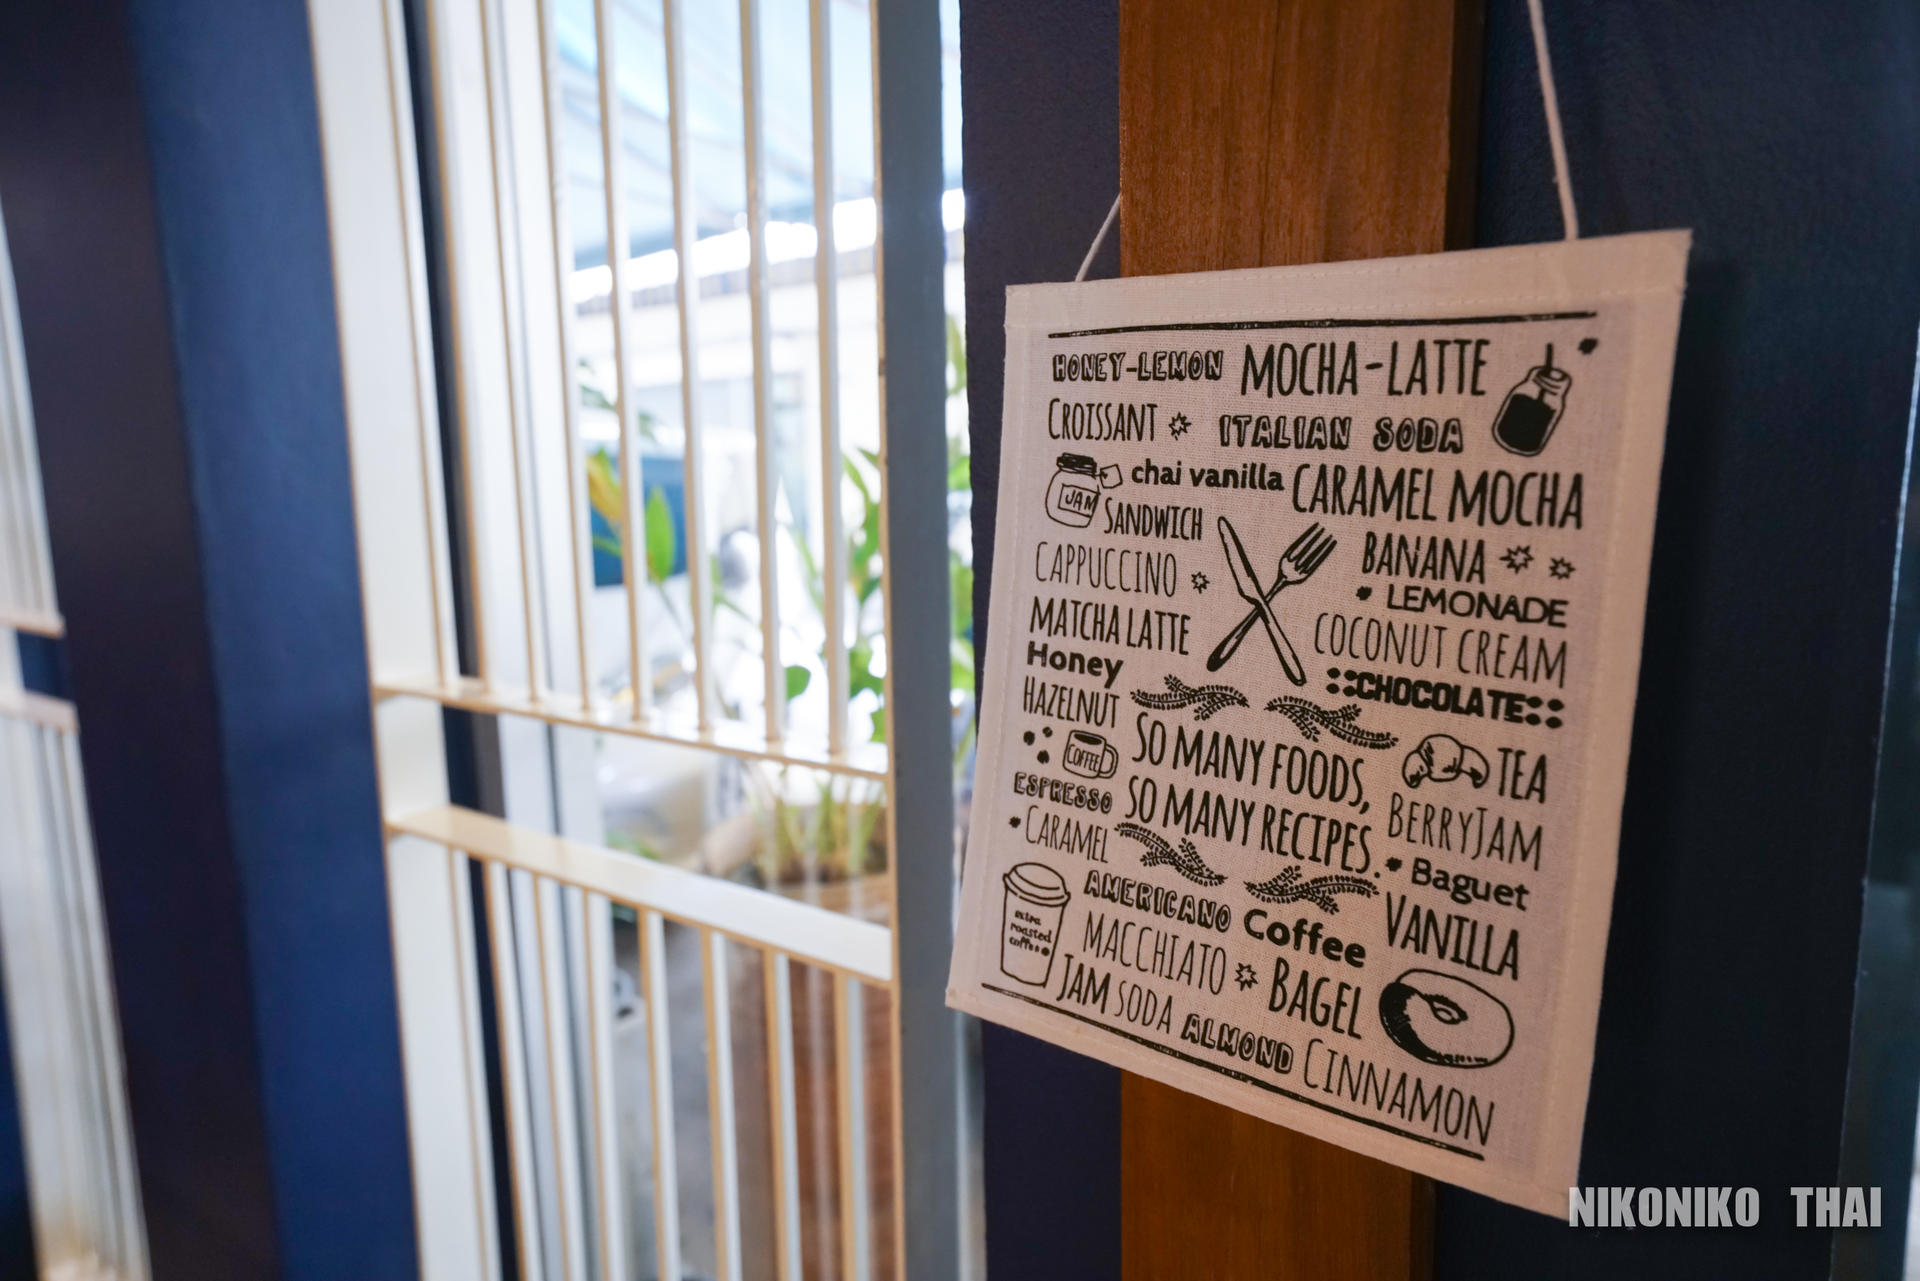 HONEY-LEMON MOCHA-LATTE
CROISSANT ITALIAN SODA
chai vanilla CARAMEL MOCHA
JAM
SANDWICH
CAPPUCCINO
BANANA
LEMONADE
MATCHA LATTE
COCONUT CREAM
Honey
CHOCOLATE
HAZELNUT
COFFEE
SO MANY FOODS,
TEA
ESPRESSO
SO MANY RECIPES.
BERRYJAM
CARAMEL
Baguet
AMERICANO Coffee
VANILLA
extra
roasted
coffee
MACCHIATO
BAGEL
JAM SODA ALMOND CINNAMON
NIKONIKO THAI